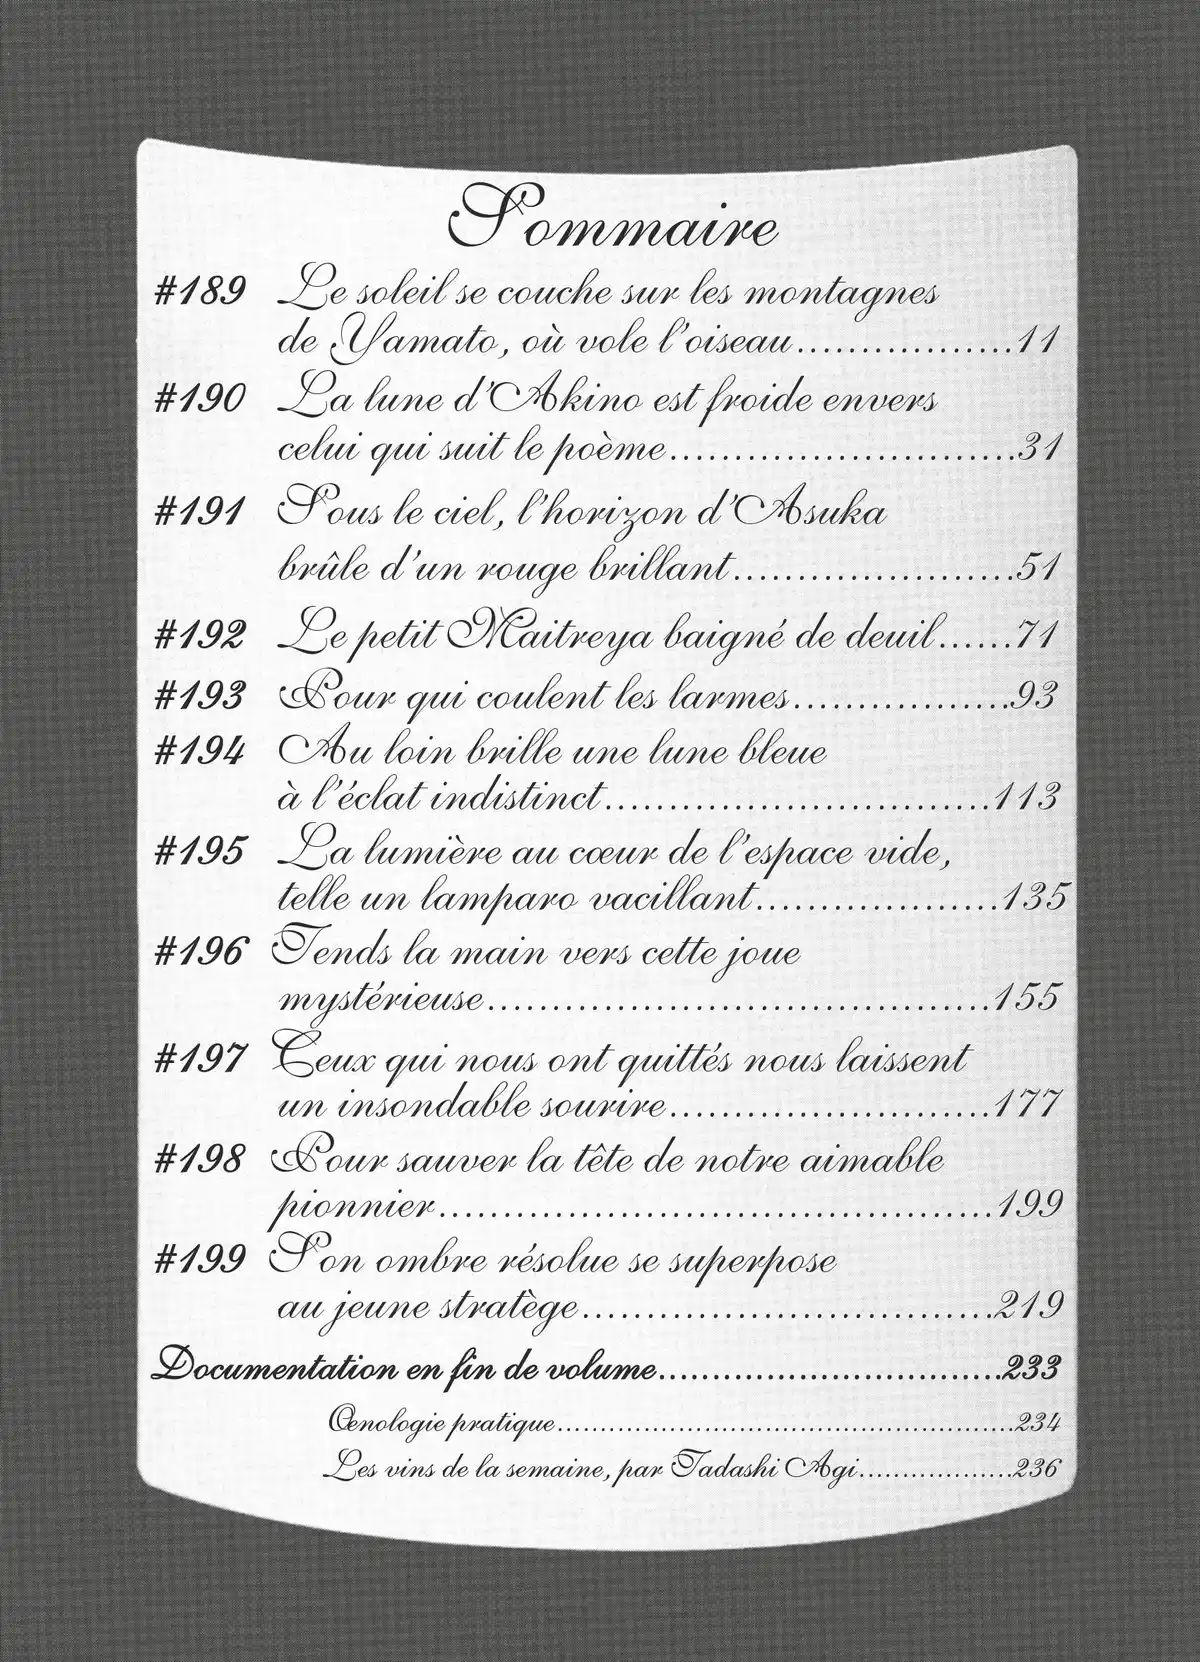 Sommaire
#189 Le soleil se couche sur les montagnes
de Yamato, où vole l'oiseau....................11
#190 La lune d'Akino est froide envers
celui qui suit le poème...........................31
#191 Sous le ciel, l'horizon d'Asuka
brûle d'un rouge brillant......................51
#192 Le petit Maitreya baigné de deuil......71
#193 Pour qui coulent les larmes.................93
#194 Au loin brille une lune bleue
à l'éclat indistinct..............................113
#195 La lumière au cœur de l'espace vide,
telle un lamparo vacillant...................135
#196 Tends la main vers cette joue
mystérieuse.......................................155
#197 Ceux qui nous ont quittés nous laissent
un insondable sourire.........................177
#198 Pour sauver la tête de notre aimable
pionnier...........................................199
#199 Son ombre résolue se superpose
au jeune stratège................................219
Documentation en fin de volume...............................233
Œnologie pratique......................................................234
Les vins de la semaine, par Tadashi Agi...................236